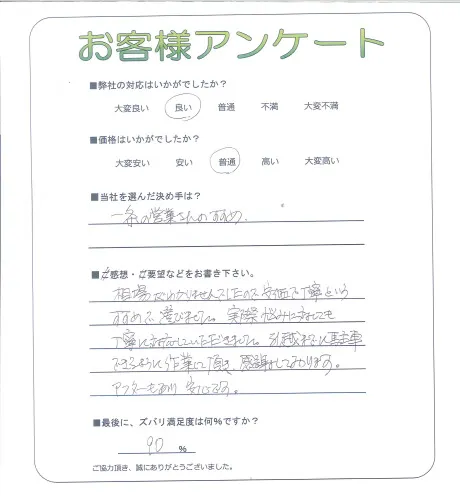 お客様アンケート
■弊社の対応はいかがでしたか？
大変良い 良い 普通 不満 大変不満
■価格はいかがでしたか？
大変安い 安い 普通 高い 大変高い
■当社を選んだ決め手は？
一条の営業さんのすすめ。
■ご感想・ご要望などをお書き下さい。
相場がわかりませんでしたので、安価で丁寧という
すすめで選びました。実際悩みにきても
丁寧に対応していただきました。引越までに駐車
できるように作業して頂き、感謝しております。
アフターもあり安心です。
■最後に、ズバリ満足度は何%ですか？
90 %
ご協力頂き、誠にありがとうございました。